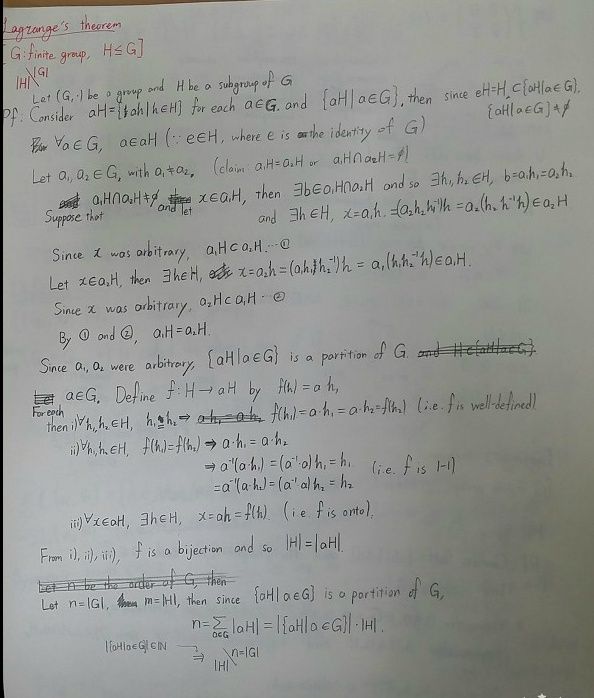 Lagrange's theorem
[G: finite group, H≤G]
|H| | |G|
Let (G, ·) be a group and H be a subgroup of G
Pf: Consider aH={ah|h∈H} for each a∈G. and {aH|a∈G}, then since eH=H⊂{aH|a∈G},
{aH|a∈G}≠∅
∀a∈G, a∈aH (∵ e∈H, where e is the identity of G)
Let a₁, a₂∈G, with a₁≠a₂, (claim a₁H=a₂H or a₁H∩a₂H=∅)
Suppose that a₁H∩a₂H≠∅ and let x∈a₁H, then ∃b∈a₁H∩a₂H and so ∃h₁,h₂∈H, b=a₁h₁=a₂h₂
and ∃h∈H, x=a₁h.=(a₂h₂h₁⁻¹)h = a₂(h₂h₁⁻¹h)∈a₂H
Since x was arbitrary, a₁H⊂a₂H.…①
Let x∈a₂H, then ∃h∈H, x=a₂h=(a₁h₁h₂⁻¹)h = a₁(h₁h₂⁻¹h)∈a₁H.
Since x was arbitrary, a₂H⊂a₁H…②
By ① and ②, a₁H=a₂H.
Since a₁, a₂ were arbitrary, {aH|a∈G} is a partition of G. and H∈{aH|a∈G}.
For each a∈G, Define f:H→aH by f(h)=ah,
then i)∀h₁,h₂∈H, h₁=h₂⇒ a·h₁=a·h₂ f(h₁)=a·h₁=a·h₂=f(h₂) (i.e. f is well-defined)
ii)∀h₁,h₂∈H, f(h₁)=f(h₂)⇒a·h₁=a·h₂
⇒a⁻¹(a·h₁)=(a⁻¹·a)h₁=h₁ (i.e. f is 1-1)
=a⁻¹(a·h₂)=(a⁻¹·a)h₂=h₂
iii)∀x∈aH, ∃h∈H, x=ah=f(h). (i.e. f is onto).
From i), ii), iii), f is a bijection and so |H|=|aH|.
Let n be the order of G, then
Let n=|G|, m=|H|, then since {aH|a∈G} is a partition of G,
n=∑a∈G |aH|=|{aH|a∈G}|·|H|.
|{aH|a∈G}|∈ℕ ⇒ |H| | n=|G|